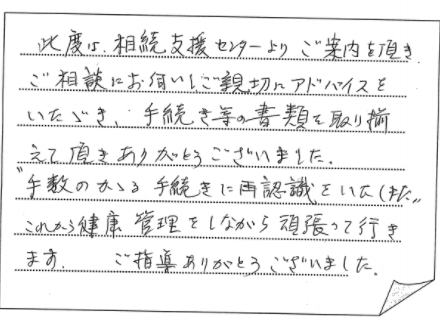 此度は、相続支援センターよりご案内を頂き
ご相談にお伺いしご親切にアドバイスを
いただき、手続き等の書類を取り揃
えて頂きありがとうございました。
"手数のかゝる手続きに再認識をいたしました"
これから健康管理をしながら頑張って行き
ます。 ご指導ありがとうございました。